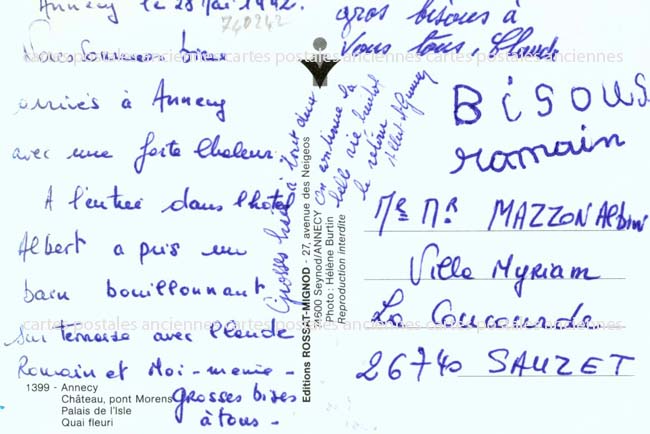 Annecy le 28 Mai 1992.
740242
Nous sommes bien
arrivés à Annecy
avec une forte chaleur
A l'entrée dans l'hotel
Albert a pris un
bain bouillonnant
sur terrasse avec Claude
Romain et Moi-meme -
Grosses bises
à tous -
Grosses bises à tout deux
On continue la
belle vie
le retour
gros bisous à
Vous tous. Claude
Bisous
romain
Me Mr MAZZON Albin
Villa Myriam
La Coucourde
26740 SAUZET
1399 - Annecy
Château, pont Morens
Palais de l'Isle
Quai fleuri
Editions ROSSAT-MIGNOD - 27, avenue des Neigeos
74600 Seynod/ANNECY
Photo : Hélène Burtin
Reproduction interdite
cartes postales anciennes cartes postales anciennes cartes postales anciennes
cartes postales anciennes cartes postales anciennes cartes postales anciennes